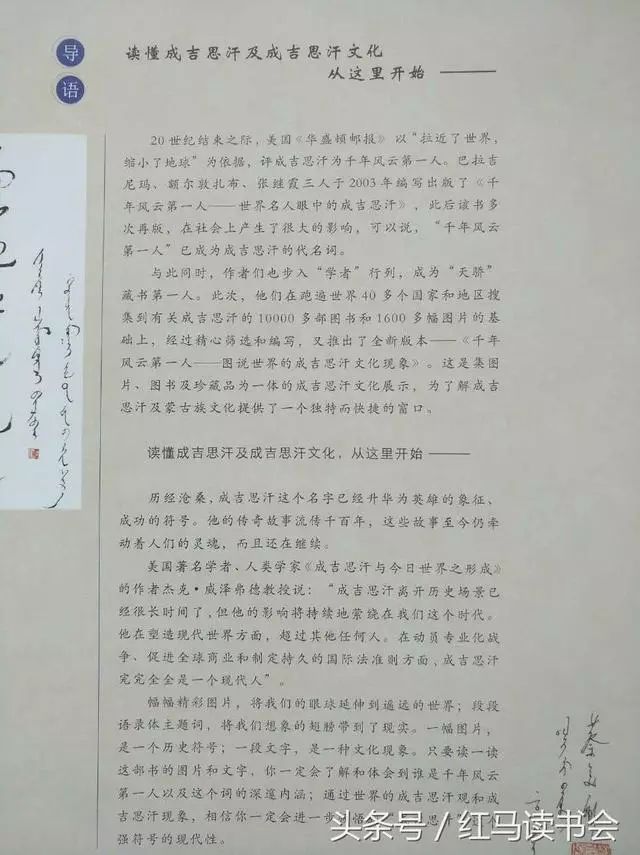 导
语
读懂成吉思汗及成吉思汗文化
从这里开始 ———
20世纪结束之际，美国《华盛顿邮报》以“拉近了世界，
缩小了地球”为依据，评成吉思汗为千年风云第一人。巴拉吉
尼玛、额尔敦扎布、张继霞三人于2003年编写出版了《千
年风云第一人——世界名人眼中的成吉思汗》，此后该书多
次再版，在社会上产生了很大的影响，可以说，“千年风云
第一人”已成为成吉思汗的代名词。
与此同时，作者们也步入“学者”行列，成为“天骄”
藏书第一人。此次，他们在跑遍世界40多个国家和地区搜
集到有关成吉思汗的10000多部图书和1600多幅图片的基
础上，经过精心筛选和编写，又推出了全新版本——《千年
风云第一人——图说世界的成吉思汗文化现象》。这是集图
片、图书及珍藏品为一体的成吉思汗文化展示，为了解成吉
思汗及蒙古族文化提供了一个独特而快捷的窗口。
读懂成吉思汗及成吉思汗文化，从这里开始 ———
历经沧桑，成吉思汗这个名字已经升华为英雄的象征、
成功的符号。他的传奇故事流传千百年，这些故事至今仍牵
动着人们的灵魂，而且还在继续。
美国著名学者、人类学家《成吉思汗与今日世界之形成》
的作者杰克·威泽弗德教授说：“成吉思汗离开历史场景已
经很长时间了，但他的影响将持续地萦绕在我们这个时代。
他在塑造现代世界方面，超过其他任何人。在动员专业化战
争、促进全球商业和制定持久的国际法准则方面，成吉思汗
完完全全是一个现代人”。
幅幅精彩图片，将我们的眼球延伸到遥远的世界；段段
语录体主题词，将我们想象的翅膀带到了现实。一幅图片，
是一个历史符号；一段文字，是一种文化现象。只要读一读
这部书的图片和文字，你一定会了解和体会到谁是千年风云
第一人以及这个词的深邃内涵；通过世界的成吉思汗观和成
吉思汗现象，相信你一定会进一步
强符号的现代性。
头条号/红马读书会